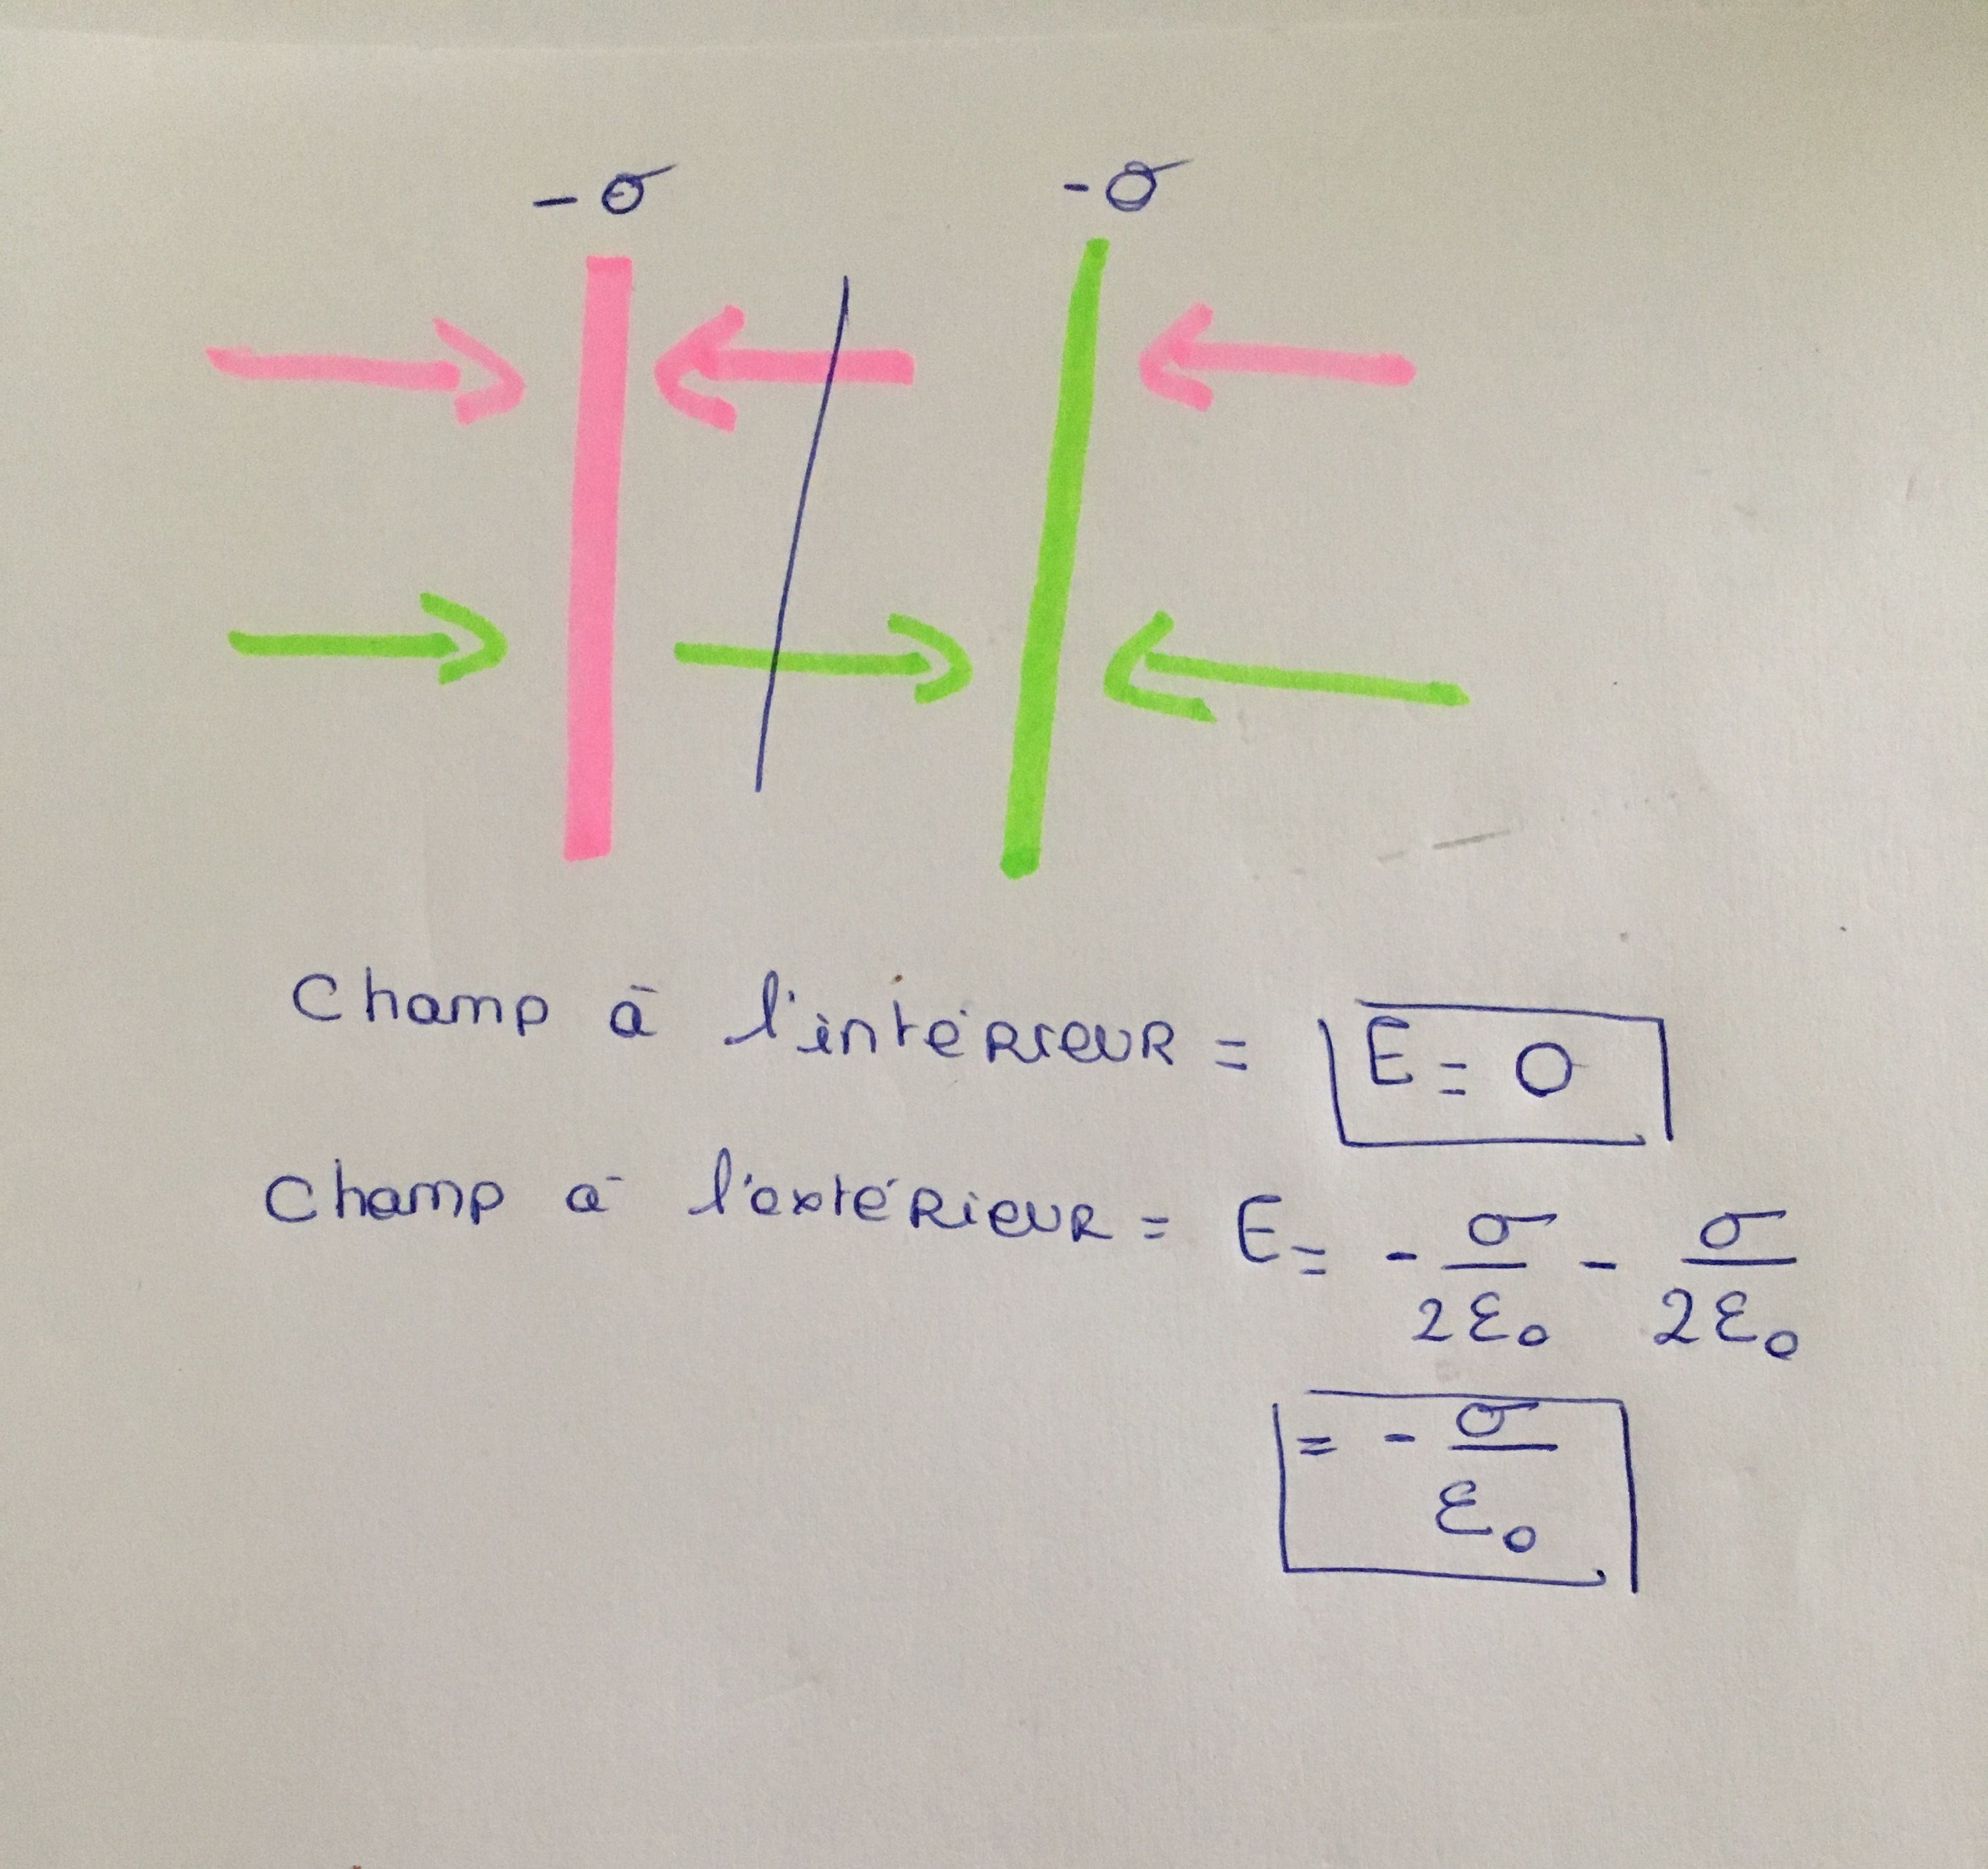 -σ -σ
Champ à l'intérieur = E = 0
Champ à l'extérieur = E = - σ/2ε₀ - σ/2ε₀
= - σ/ε₀